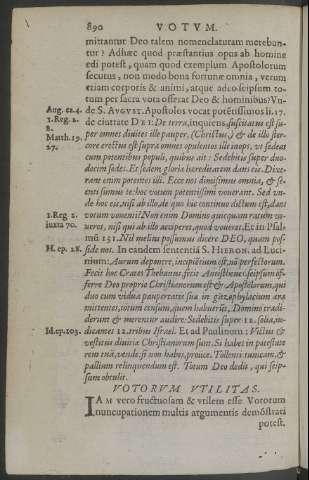 890 VOTVM.
mittantur Deo talem nomenclaturam merebun-
tur? Adhæc quod præstantius opus ab homine
edi potest, quam quod exemplum Apostolorum
secutus, non modo bona fortunæ omnia, verum
etiam corporis & animi, atque adeo seipsum to-
tum per sacra vota offerat Deo & hominibus? Vn-
Aug. ca. 4. de S. AVGVST. Apostolos vocat potentissimos li. 17.
1. Reg. 2. de ciuitate DEI: De terra, inquiens, suscitatus est su-
8. per omnes diuites ille pauper, (Christus,) & de illo ster-
Matth. 19. core erectus est supra omnes opulentos ille inops, vt sedeat
27. cum potentibus populi, quibus ait: Sedebitis super duo-
decim sedes. Et sedem gloria hereditatem dans eis. Dixe-
rant enim potentes illi. Ecce nos dimisimus omnia, & se-
cuti sumus te: hoc votum potentissimi vouerant. Sed vn-
de hoc eis, nisi ab illo, de quo hic continuo dictum est, dans
1. Reg. 2. votum vouenti? Non enim Domino quisquam ratum vo-
iuxta 70. ueret, nisi qui ab illo acciperet, quod voueret. Et in Psal-
mũ 131. Nil melius possumus dicere DEO, quam pos-
H. ep. 28. side nos. In eandem sententiã S. HIERON. ad Luci-
nium: Aurum deponere, incipientium est, nõ perfectorum.
Fecit hoc Crates Thebanus, fecit Antisthenes: seipsum of-
ferre Deo propriè Christianorum est & Apostolorum, qui
duo cum vidua paupertatis sua in gazophylacium æra
mittentes, totum censum, quem habuerunt, Domino tradi-
derunt & merentur audire: Sedebitis super 12. sedes, iu-
Id. ep. 103. dicantes 12. tribus Israel. Et ad Paulinum: Victus &
vestitus diuitiæ Christianorum sunt. Si habes in potestate
rem tuã, vende, si non habes, proiice. Tollenti tunicam, &
pallium relinquendum est. Totum Deo dedit, qui seip-
sum obtulit.
VOTORVM VTILITAS.
IAM vero fructuosam & vtilem esse Votorum
nuncupationem multis argumentis demõstrari
potest.